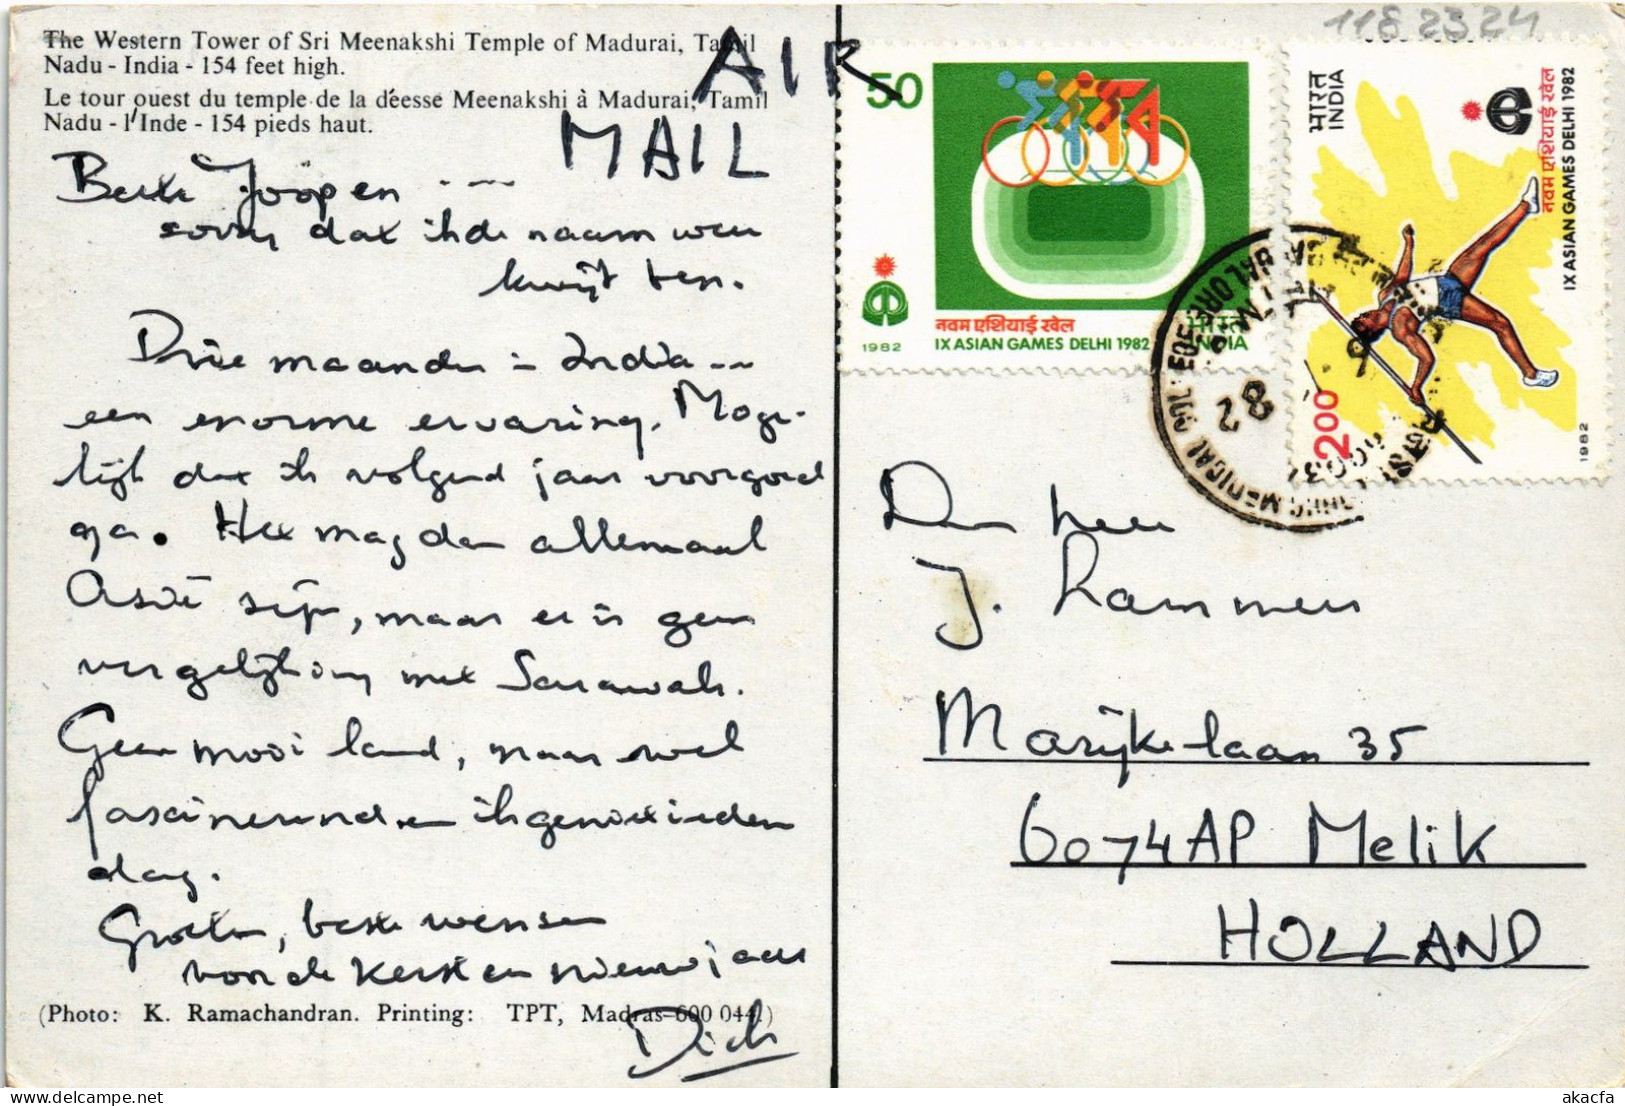 The Western Tower of Sri Meenakshi Temple of Madurai, Tamil
Nadu - India - 154 feet high.
Le tour ouest du temple de la déesse Meenakshi à Madurai, Tamil
Nadu - l'Inde - 154 pieds haut.
AIR
MAIL
Beste Joopen ---
sorry dat ik de naam weer
kwijt ben.
Drie maanden in India ---
een enorme ervaring. Moge-
lijk dat ik volgend jaar voorgoed
ga. Het mag dan allemaal
Azië zijn, maar er is geen
vergelijking met Sarawak.
Geen mooi land, maar wel
fascinerend en ik geniet iedere
dag.
Groeten, beste wensen
voor de Kerst en nieuwjaar
Dick
(Photo: K. Ramachandran. Printing: TPT, Madras-600 044.)
1182324
50
नवम एशियाई खेल
भारत
1982
IX ASIAN GAMES DELHI 1982
INDIA
भारत
INDIA
नवम एशियाई खेल
IX ASIAN GAMES DELHI 1982
2.00
1982
82
Den heer
J. Rammers
Marijkelaan 35
6074AP Melik
HOLLAND
akacfa